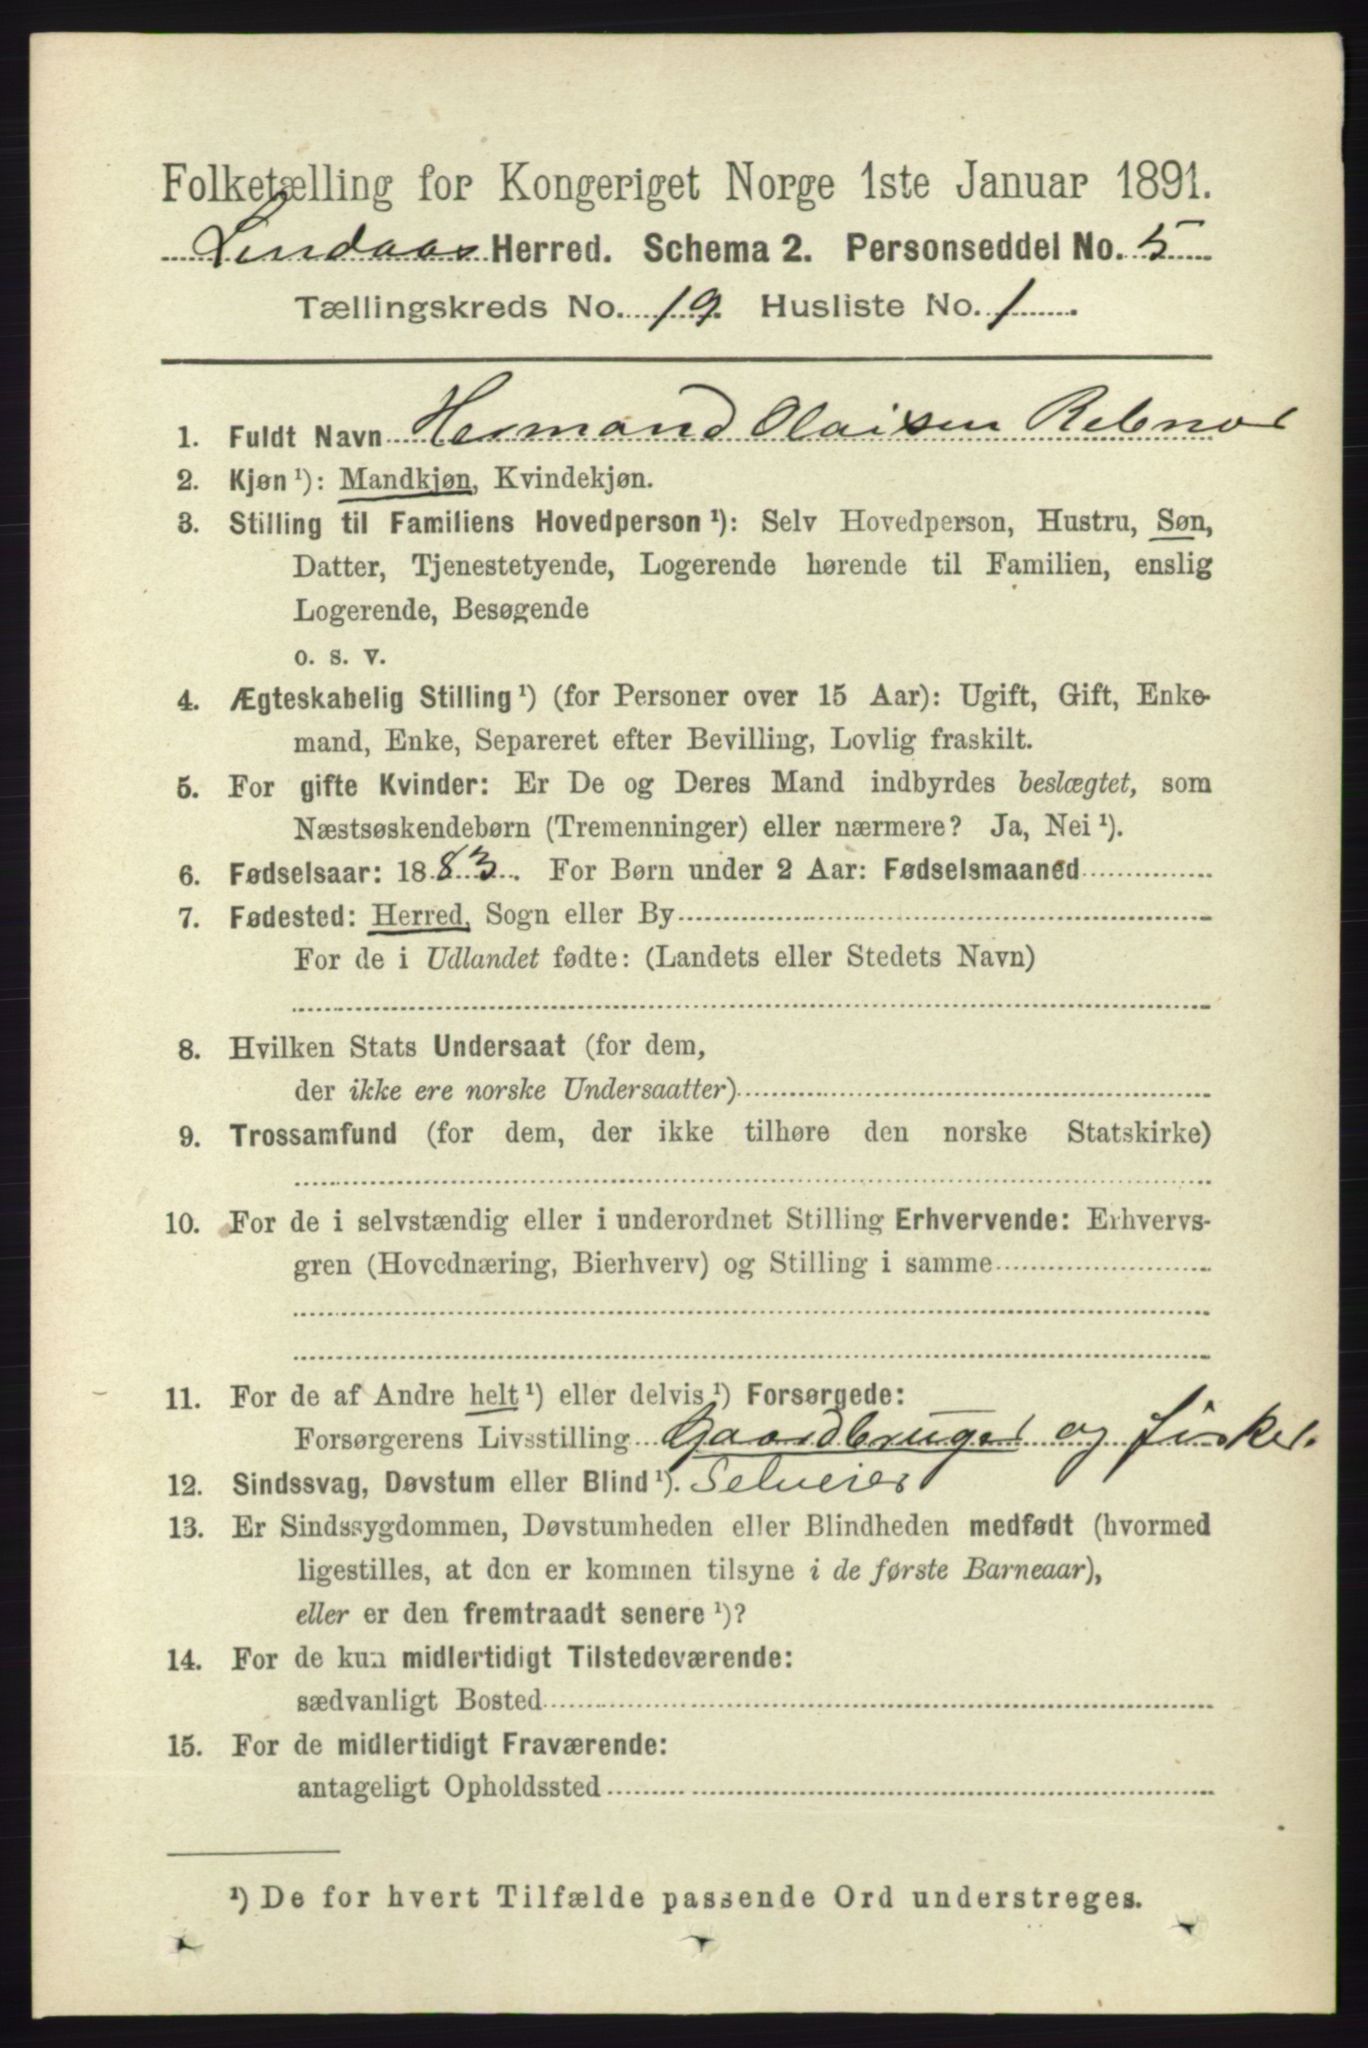 Folketælling for Kongeriget Norge 1ste Januar 1891.
Lindaas Herred. Schema 2. Personseddel No. 5
Tællingskreds No. 19. Husliste No. 1
1. Fuldt Navn Hermand Olaisen Rebnor
2. Kjøn ¹): Mandkjøn, Kvindekjøn.
3. Stilling til Familiens Hovedperson ¹): Selv Hovedperson, Hustru, Søn,
Datter, Tjenestetyende, Logerende hørende til Familien, enslig
Logerende, Besøgende
o. s. v.
4. Ægteskabelig Stilling ¹) (for Personer over 15 Aar): Ugift, Gift, Enke-
mand, Enke, Separeret efter Bevilling, Lovlig fraskilt.
5. For gifte Kvinder: Er De og Deres Mand indbyrdes beslægtet, som
Næstsøskendebørn (Tremenninger) eller nærmere? Ja, Nei ¹).
6. Fødselsaar: 1883. For Børn under 2 Aar: Fødselsmaaned
7. Fødested: Herred, Sogn eller By
For de i Udlandet fødte: (Landets eller Stedets Navn)
8. Hvilken Stats Undersaat (for dem,
der ikke ere norske Undersaatter)
9. Trossamfund (for dem, der ikke tilhøre den norske Statskirke)
10. For de i selvstændig eller i underordnet Stilling Erhvervende: Erhvervs-
gren (Hovednæring, Bierhverv) og Stilling i samme
11. For de af Andre helt ¹) eller delvis ¹) Forsørgede:
Forsørgerens Livsstilling Gaardbruger og fisker.
12. Sindssvag, Døvstum eller Blind ¹). Selveier
13. Er Sindssygdommen, Døvstumheden eller Blindheden medfødt (hvormed
ligestilles, at den er kommen tilsyne i de første Barneaar),
eller er den fremtraadt senere ¹)?
14. For de kun midlertidigt Tilstedeværende:
sædvanligt Bosted
15. For de midlertidigt Fraværende:
antageligt Opholdssted
¹) De for hvert Tilfælde passende Ord understreges.